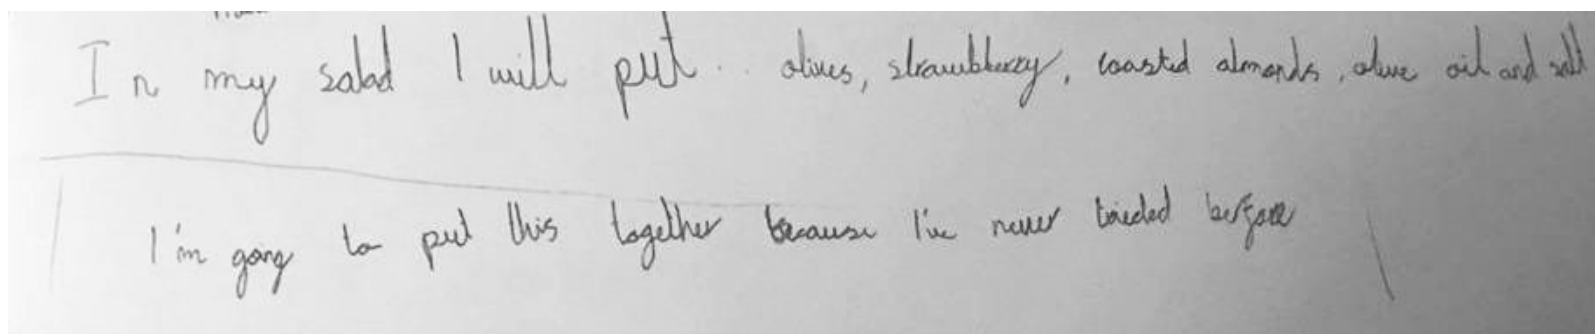 In my salad I will put.. olives, strawbberry, toasted almonds, olive oil and salt
I'm gong to put this together because I've never trieded before